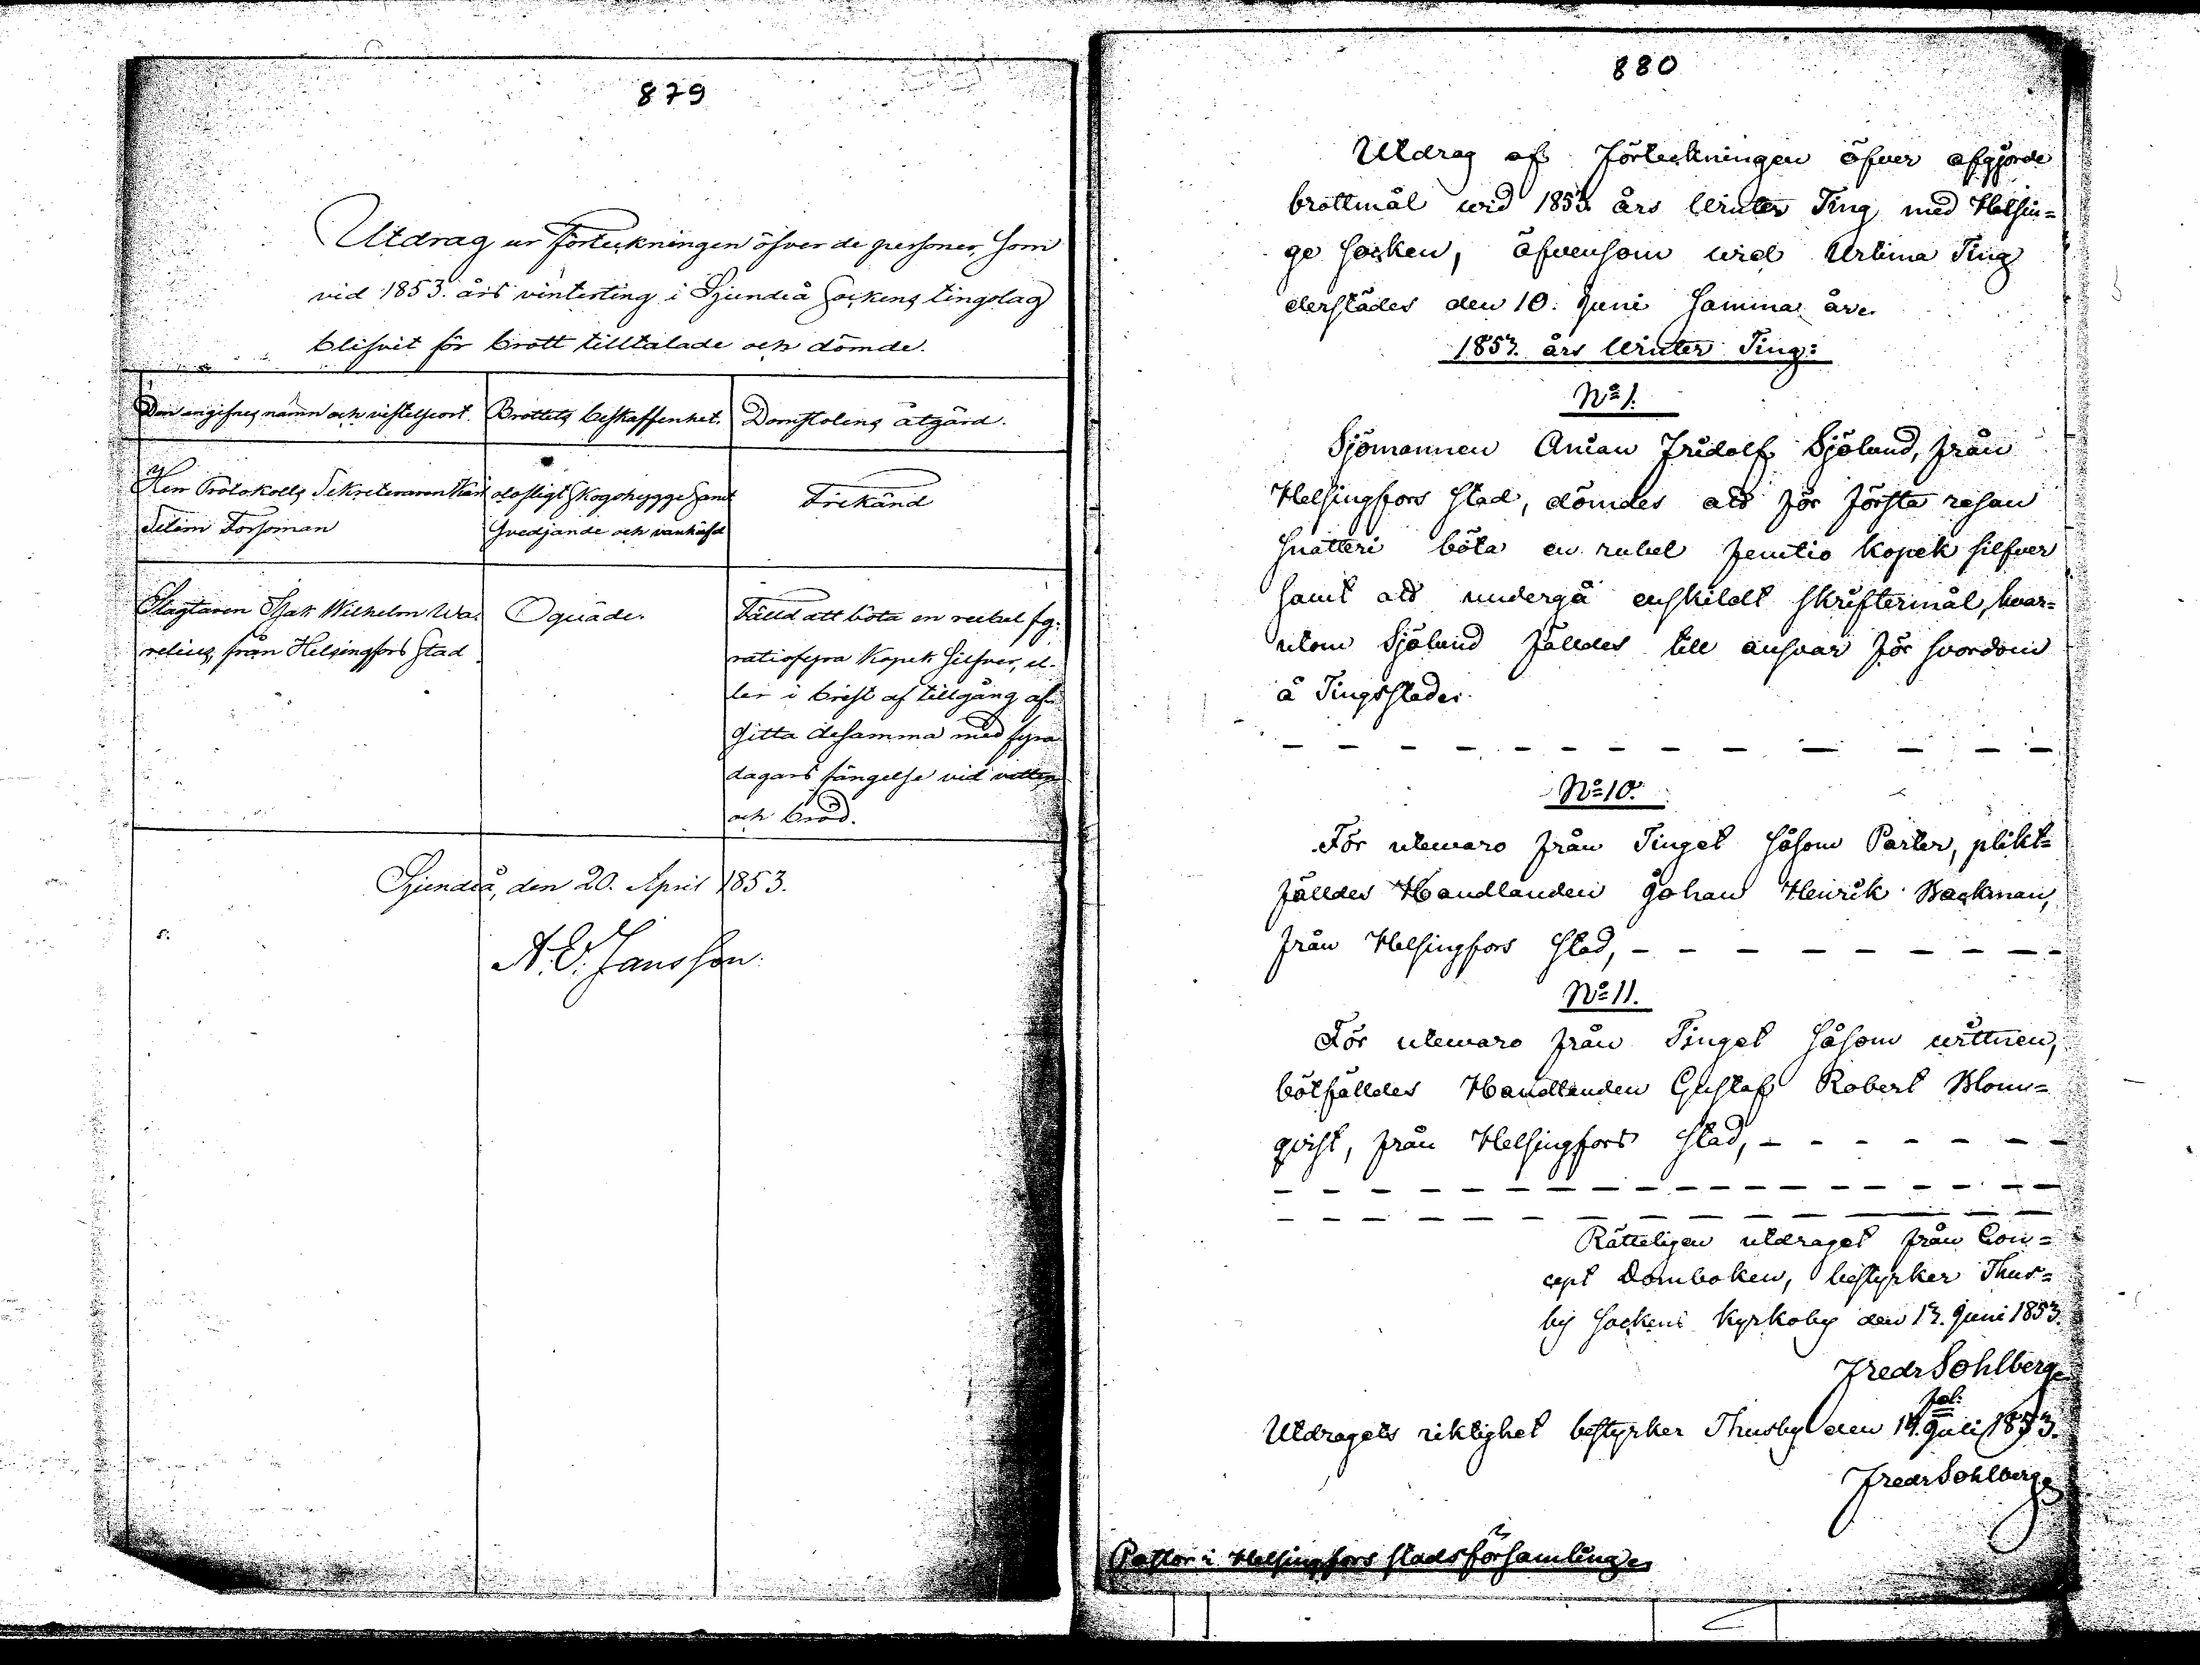 879
Utdrag ur Förteckningen öfver de personer, som
vid 1853. års vinterting i Sjundeå Sockens tingslag
blifvit för brott tilltalade och dömde.
Den angifnes namn och vistelseort.
Brottets beskaffenhet.
Domstolens åtgärd.
Herr Protokolls Sekreteraren
Forsoman
olofligt Skogshygge samt
Svedjande och vanhäfd
Frikänd
Slagtaren Isak Wilhelm Wa-
relius, från Helsingfors Stad
Oqväde.
Fälld att böta en rubel fy-
ratiofyra Kopek Silfver, el-
ler i brist af tillgång af-
sitta desamma med fyra
dagars fängelse vid vatten
och bröd.
Sjundeå, den 20. April 1853.
A. E. Jansson.
880
Utdrag af Förteckningen öfver afgjorde
brottmål wid 1853 års Winter Ting med Helsin=
ge Socken, äfvensom wid Urtima Ting
derstädes den 10. Juni samma år.
1853. års Winter Ting:
No 1.
Sjömannen Anian Fridolf Sjölund, från
Helsingfors Stad, dömdes att för första resan
snatteri böta en rubel femtio Kopek silfver
samt att undergå enskildt skriftermål, hvar=
utom Sjölund fälldes till ansvar för svordom
å Tingsstade.
No 10.
För utewaro från Tinget såsom Parter, plikt=
fälldes Handlanden Johan Henrik Backman,
från Helsingfors Stad,
No 11.
För utewaro från Tinget såsom wittnen,
bötfälldes Handlanden Gustaf Robert Blom=
qvist, från Helsingfors Stad,
Rätteligen utdraget från Con=
cept Domboken, bestyrker Thus=
by Sockens Kyrkoby den 13. Juni 1853.
Fredr Sohlberg
Utdragets riktighet bestyrker Thusby den 14. Juli 1853.
Fredr Sohlberg
Pastor i Helsingfors stadsförsamling